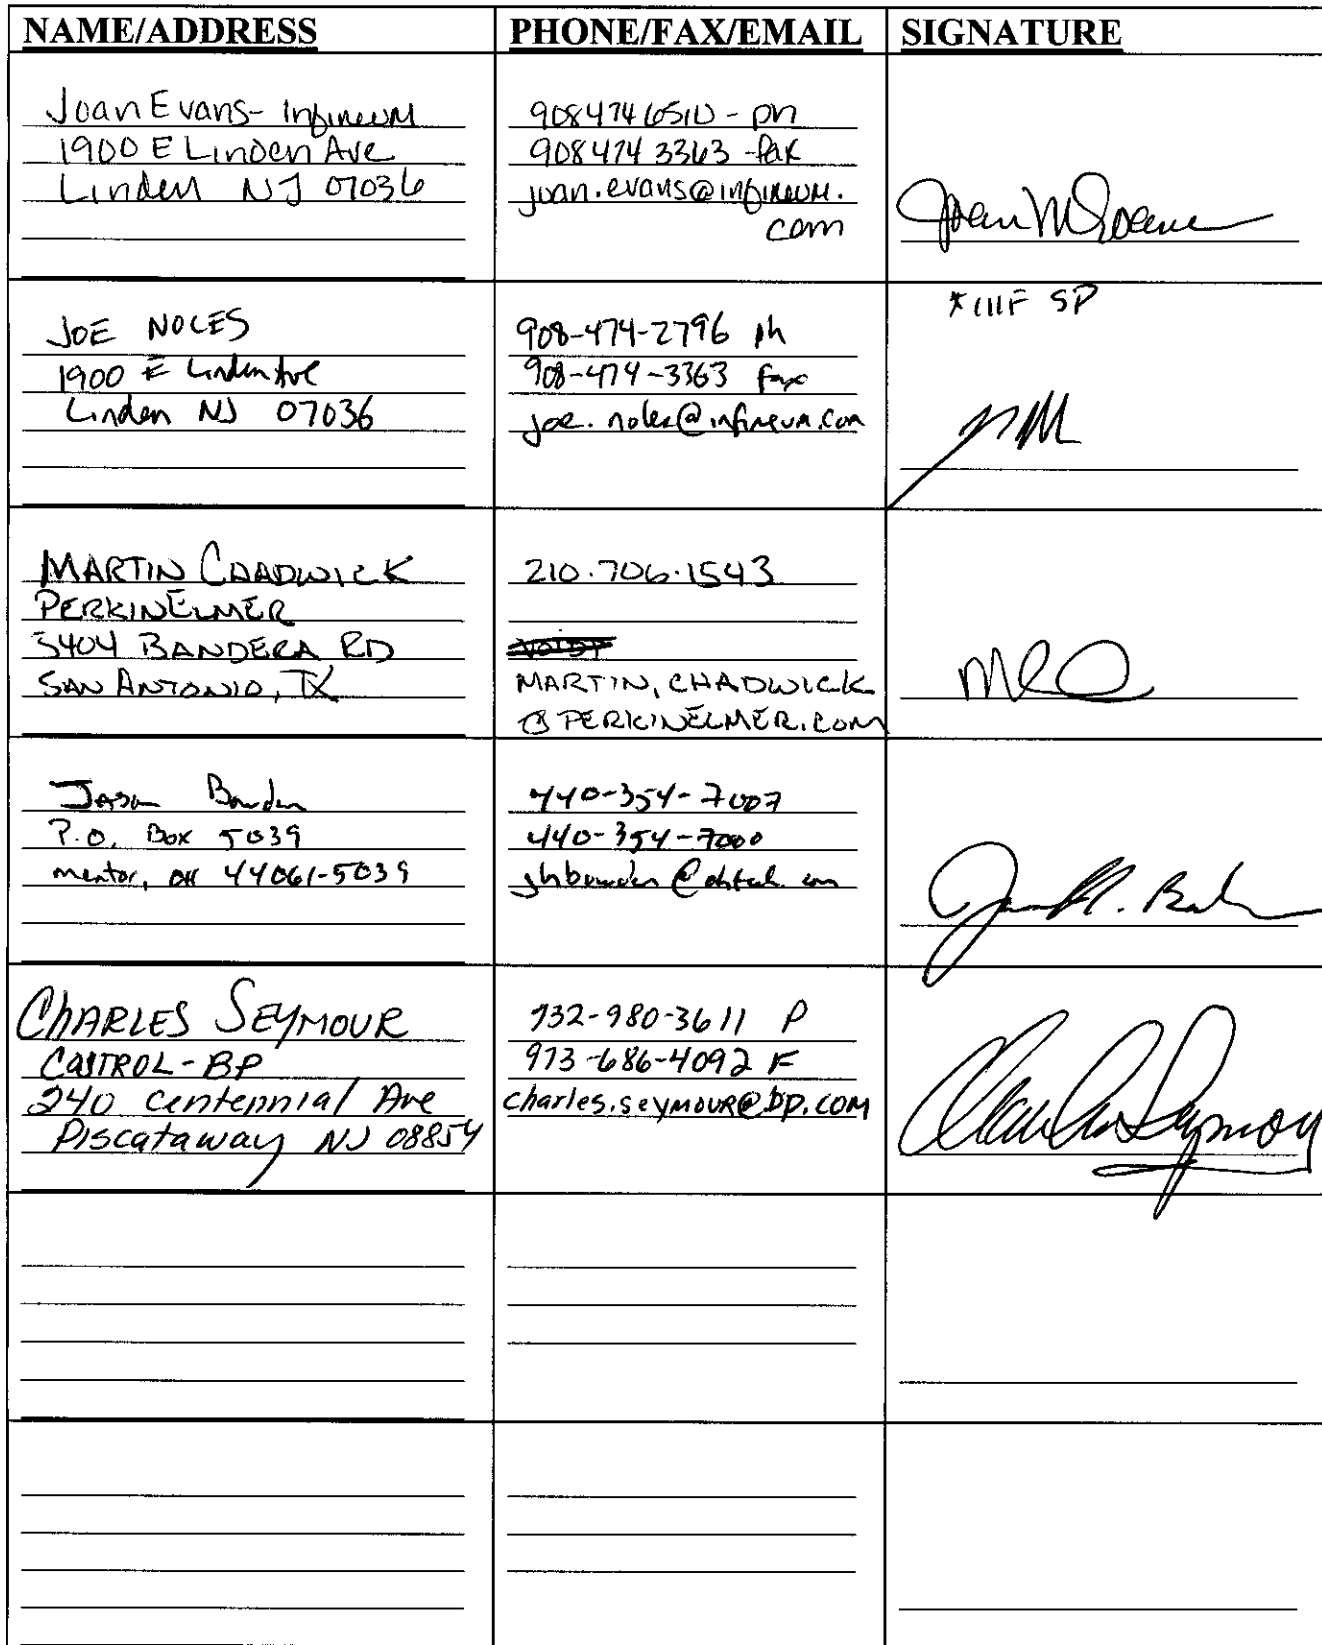 NAME/ADDRESS
PHONE/FAX/EMAIL
SIGNATURE
Joan Evans- Infineum
1900 E Linden Ave
Linden NJ 07036
908 474 6510 - ph
908 474 3363 -fax
joan.evans@infineum.
com
JOE NOLES
1900 E Linden Ave
Linden NJ 07036
908-474-2796 ph
908-474-3363 fax
joe.noles@infineum.com
*IIIF SP
MARTIN CHADWICK
PERKINELMER
5404 BANDERA RD
SAN ANTONIO, TX
210.706.1543
MARTIN.CHADWICK
@PERKINELMER.COM
Jason Bowden
P.O. Box 5039
mentor, OH 44061-5039
440-354-7007
440-354-7000
jhbowden@ohtech.com
CHARLES SEYMOUR
CASTROL-BP
240 Centennial Ave
Piscataway NJ 08854
732-980-3611 P
973-686-4092 F
charles.seymour@bp.com